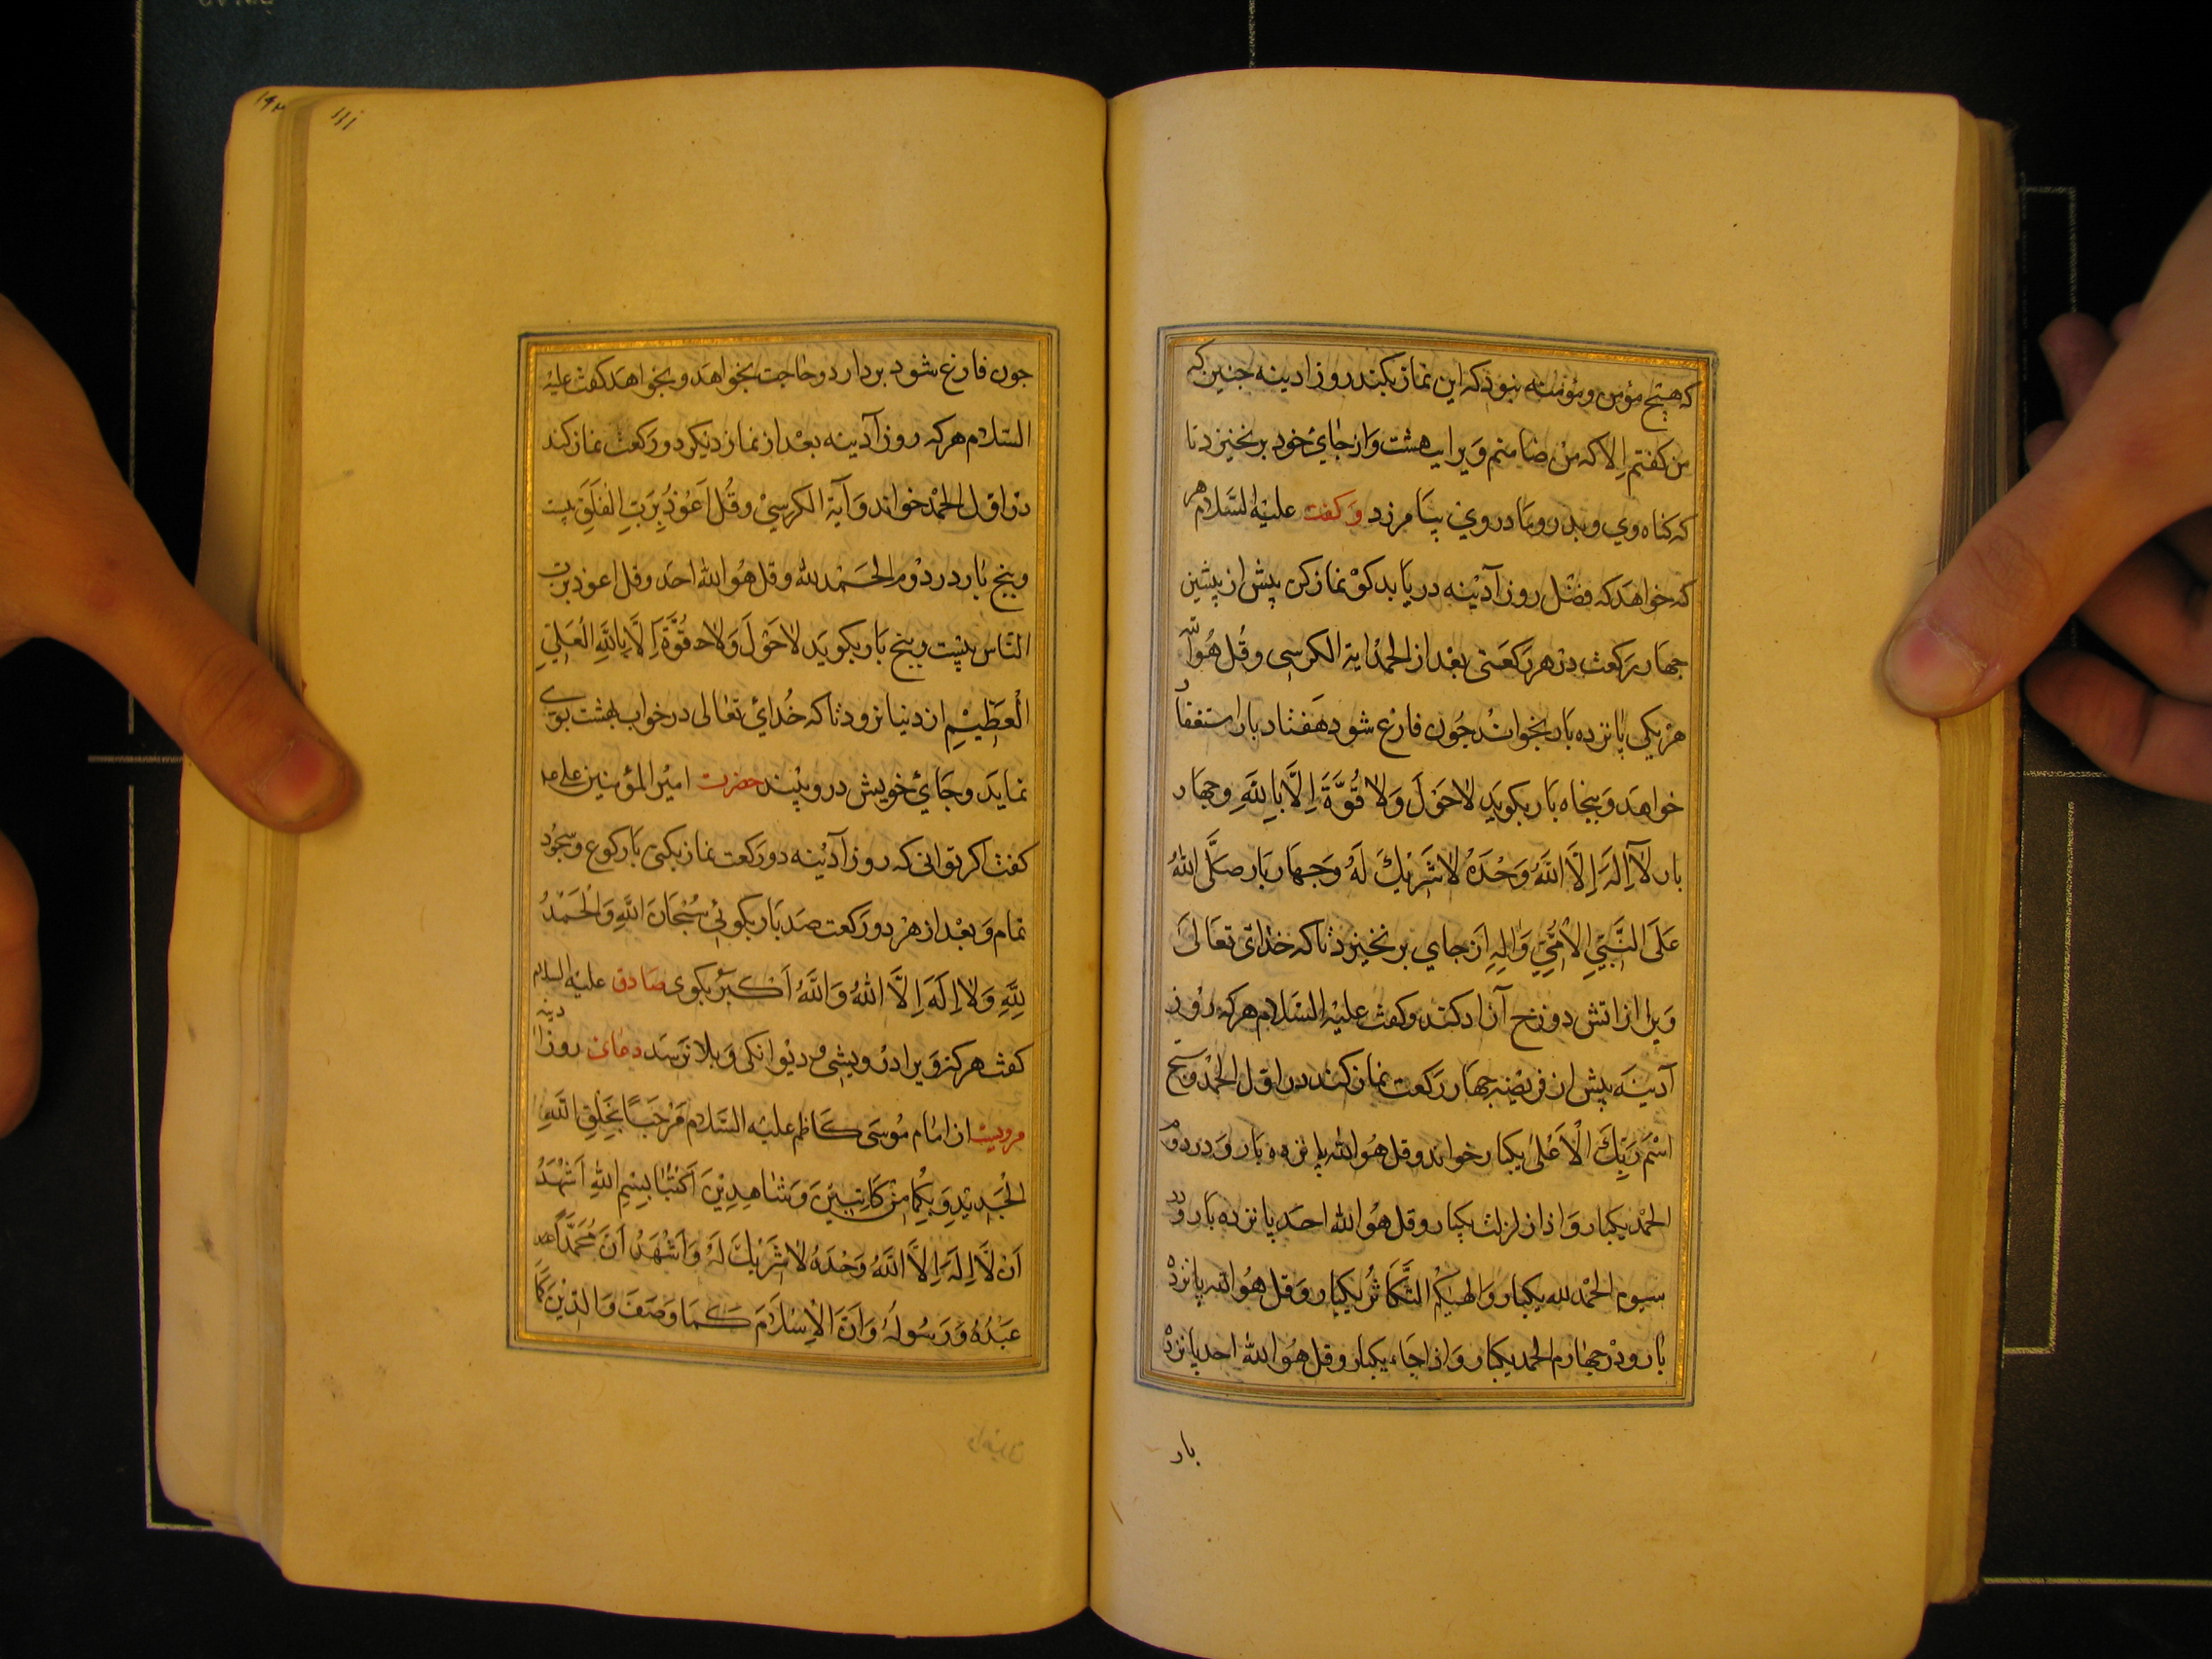 که هیچ مؤمن و مؤمنه نبود که این نماز بکند روز ادینه جنین که
من کفتم الا که من ضامنم ویرا بهشت واز جای خود برنخیزد تا
که کناه وی وبدر ومادر وی بیامرزد وکفت علیه السلام هر
که خواهد که فضل روز آدینه دریابد کو نماز کن پیش از پیشین
جهار رکعت در هر رکعتی بعد از الحمد ایة الکرسی وقل هو الله
هر یکی پانزده بار بخواند جون فارغ شود هفتاد بار استغفار
خواهد وپنجاه بار بکوید لا حول ولا قوة الا بالله وجهار
بار لا اله الا الله وحده لا شریك له وجهار بار صلی الله
علی النبی الامی واله از جای برنخیزد تا که خدای تعالی
ویرا از اتش دوزخ آزاد کند وکفت علیه السلام هرکه روز
آدینه پیش از فریضه جهار رکعت نماز کند در اول الحمد وسبح
اسم ربك الاعلی یکبار خواند وقل هو الله پانزده بار ودر دوم
الحمد یکبار واذا زلزلت یکبار وقل هو الله احد پانزده بار ودر
سیوم الحمد لله یکبار والهیکم التکاثر یکبار وقل هو الله پانزده
بار ودر جهارم الحمد یکبار واذا جاء یکبار وقل هو الله احد پانزده
بار
۱۱۱
جون فارغ شود بردارد وحاجت بخواهد وبخواهد کفت علیه
السلام هرکه روز آدینه بعد از نماز دیکر دو رکعت نماز کند
در اول الحمد خواند وآیة الکرسی وقل اعوذ برب الفلق بیست
وپنج بار در دوم الحمد لله وقل هو الله احد وقل اعوذ برب
الناس بیست وپنج بار بکوید لا حول ولا قوة الا بالله العلی
العظیم از دنیا نرود تا که خدای تعالی در خواب بهشت بوی
نماید وجای خویش درو بیند حضرت امیر المؤمنین علی عم
کفت اکر توانی که روز آدینه دو رکعت نماز بکنی با رکوع وسجود
تمام وبعد از هر دو رکعت صد بار بکوئی سبحان الله والحمد
لله ولا اله الا الله والله اکبر بکوی صادق علیه السلام
کفت هرکز ویرا درویشی و دیوانکی وبلا نرسد دعای روز ادینه
مرویست از امام موسی کاظم علیه السلام مرحبا بخلق الله
الجدید وبکما من کاتبین وشاهدین اکتبا بسم الله اشهد
ان لا اله الا الله وحده لا شریك له واشهد ان محمدا
عبده ورسوله وان الاسلام کما وصف والدین کما